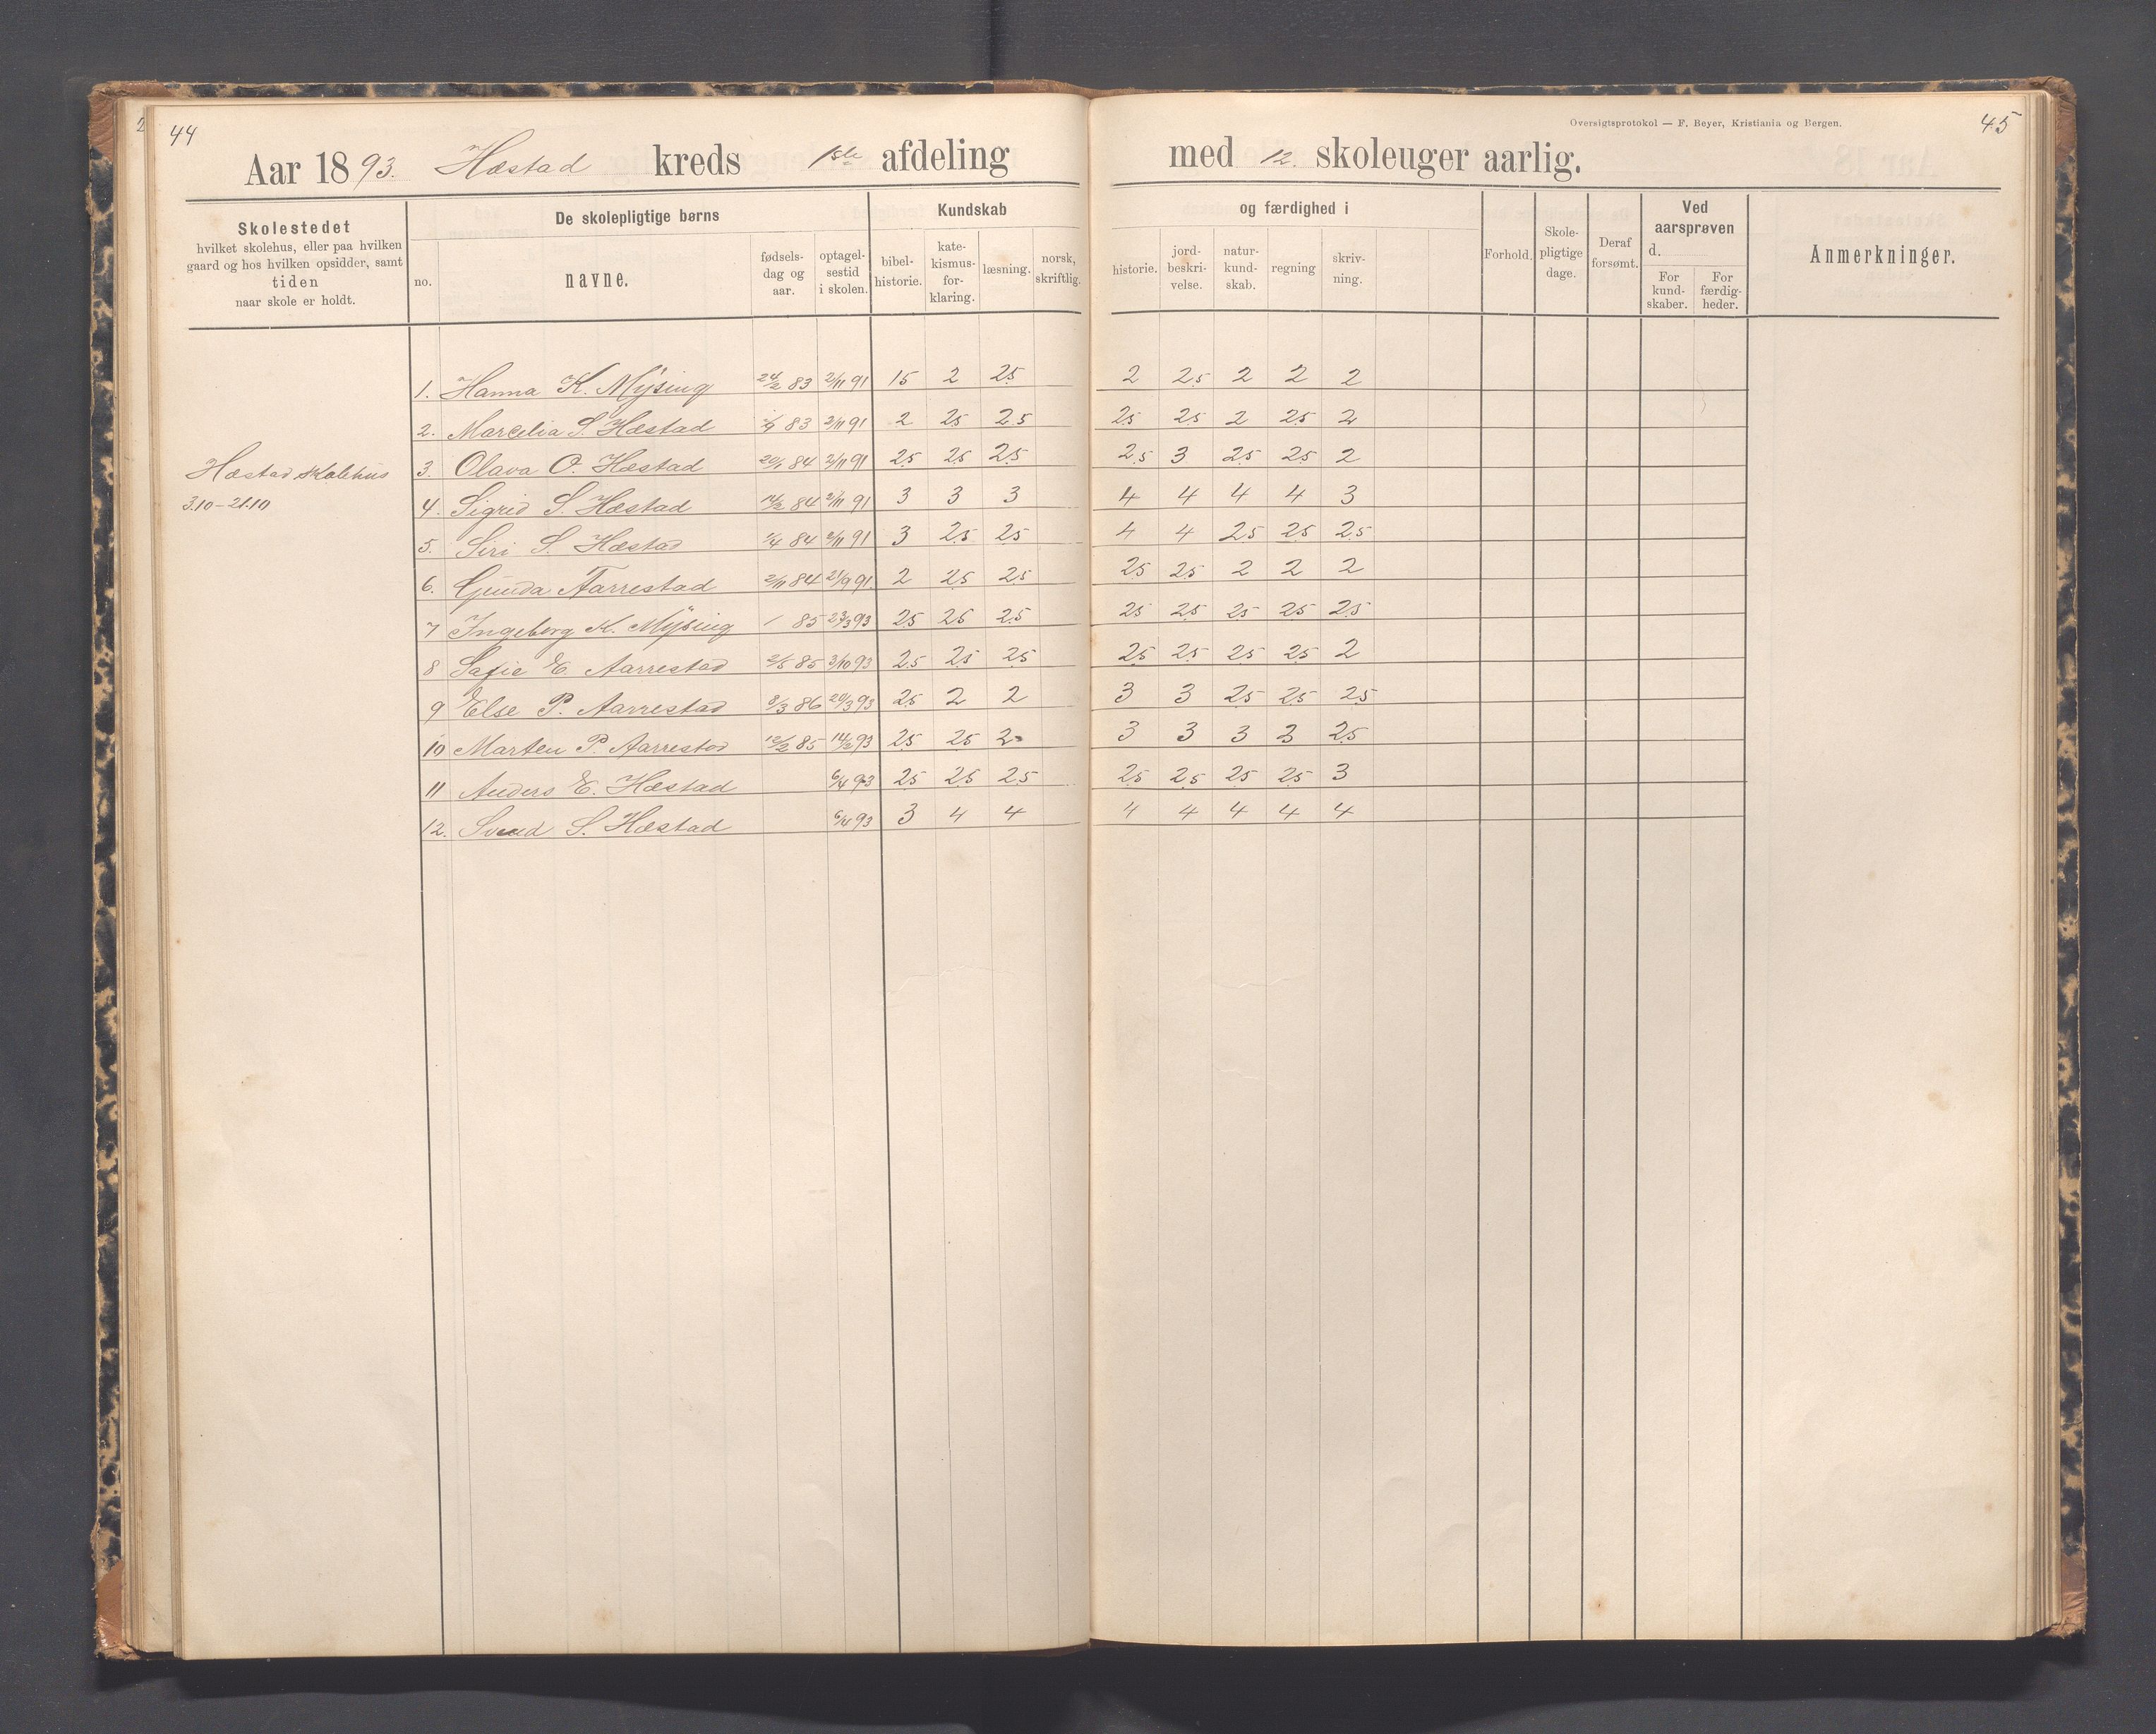 44
Aar 1893. Hæstad kreds 1ste afdeling
Skolestedet
hvilket skolehus, eller paa hvilken
gaard og hos hvilken opsidder, samt
tiden
naar skole er holdt.
De skolepligtige børns
no.
navne.
fødsels-
dag og
aar.
optagel-
sestid
i skolen.
Kundskab
bibel-
historie.
kate-
kismus-
for-
klaring.
læsning.
norsk,
skriftlig.
Hæstad skolehus
3.10–21.10
1. Hanna K. Mÿsing 24/2 83 2/11 91 15 2 25
2. Marselia S. Hæstad 83 2/11 91 2 25 25
3. Olava O. Hæstad 20/1 84 2/11 91 25 25 25
4. Sigrid S. Hæstad 14/2 84 2/11 91 3 3 3
5. Siri S. Hæstad 84 2/11 91 3 25 25
6. Gunda Aarrestad 2/11 84 21/9 91. 2 25 25
7 Ingeborg K. Mÿsing / 85 23/3 93 25 25 25
8 Sofie E. Aarrestad 2/5 85 3/10 93 25 25 25
9 Else P. Aarrestad 8/3 86 20/3 93 25 2 2
10 Marten P. Aarrestad 12/2 85 14/2 93 25 25 2
11 Anders E. Hæstad 6/4 93 25 25 25
12. Svend S. Hæstad 6/4 93 3 4 4
Oversigtsprotokol — F. Beyer, Kristiania og Bergen.
45
med 12. skoleuger aarlig.
og færdighed i
historie.
jord-
beskri-
velse.
natur-
kund-
skab.
regning
skriv-
ning.
Forhold.
Skole-
pligtige
dage.
Deraf
forsømt.
Ved
aarsprøven
d.
For
kund-
skaber.
For
færdig-
heder.
Anmerkninger.
2 25 2 2 2
25 25 2 25 2
25 3 25 25 2
4 4 4 4 3
4 4 25 25 25
25 25 2 2 2
25 25 25 25 25
25 25 25 25 2
3 3 25 25 25
3 3 3 3 25
25 25 25 25 3
4 4 4 4 4